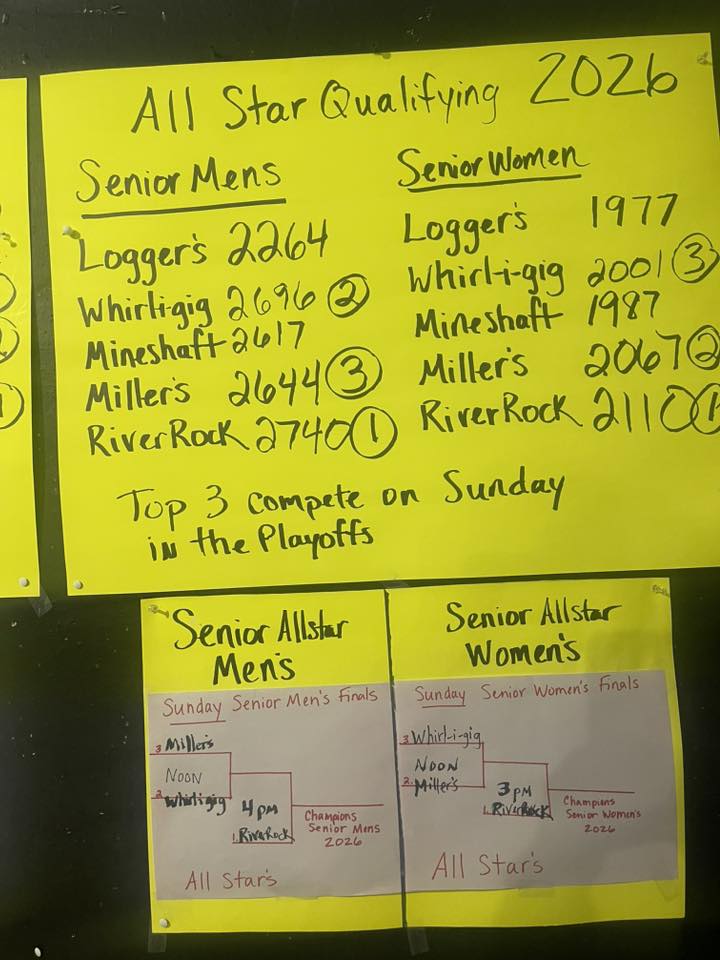 All Star Qualifying 2026
Senior Mens
Logger's 2264
Whirl-i-gig 2696 2
Mineshaft 2617
Miller's 2644 3
RiverRock 2740 1
Senior Women
Logger's 1977
Whirl-i-gig 2001 3
Mineshaft 1987
Miller's 2067 2
RiverRock 2110 1
Top 3 compete on Sunday
in the Playoffs
Senior Allstar
Men's
Sunday Senior Men's Finals
3 Miller's
NOON
2. Whirligig
4 pm
1. RiverRock
Champions
Senior Mens
2026
All Star's
Senior Allstar
Women's
Sunday Senior Women's Finals
3 Whirl-i-gig
NOON
2. Miller's
3 pm
1. RiverRock
Champions
Senior Women's
2026
All Star's